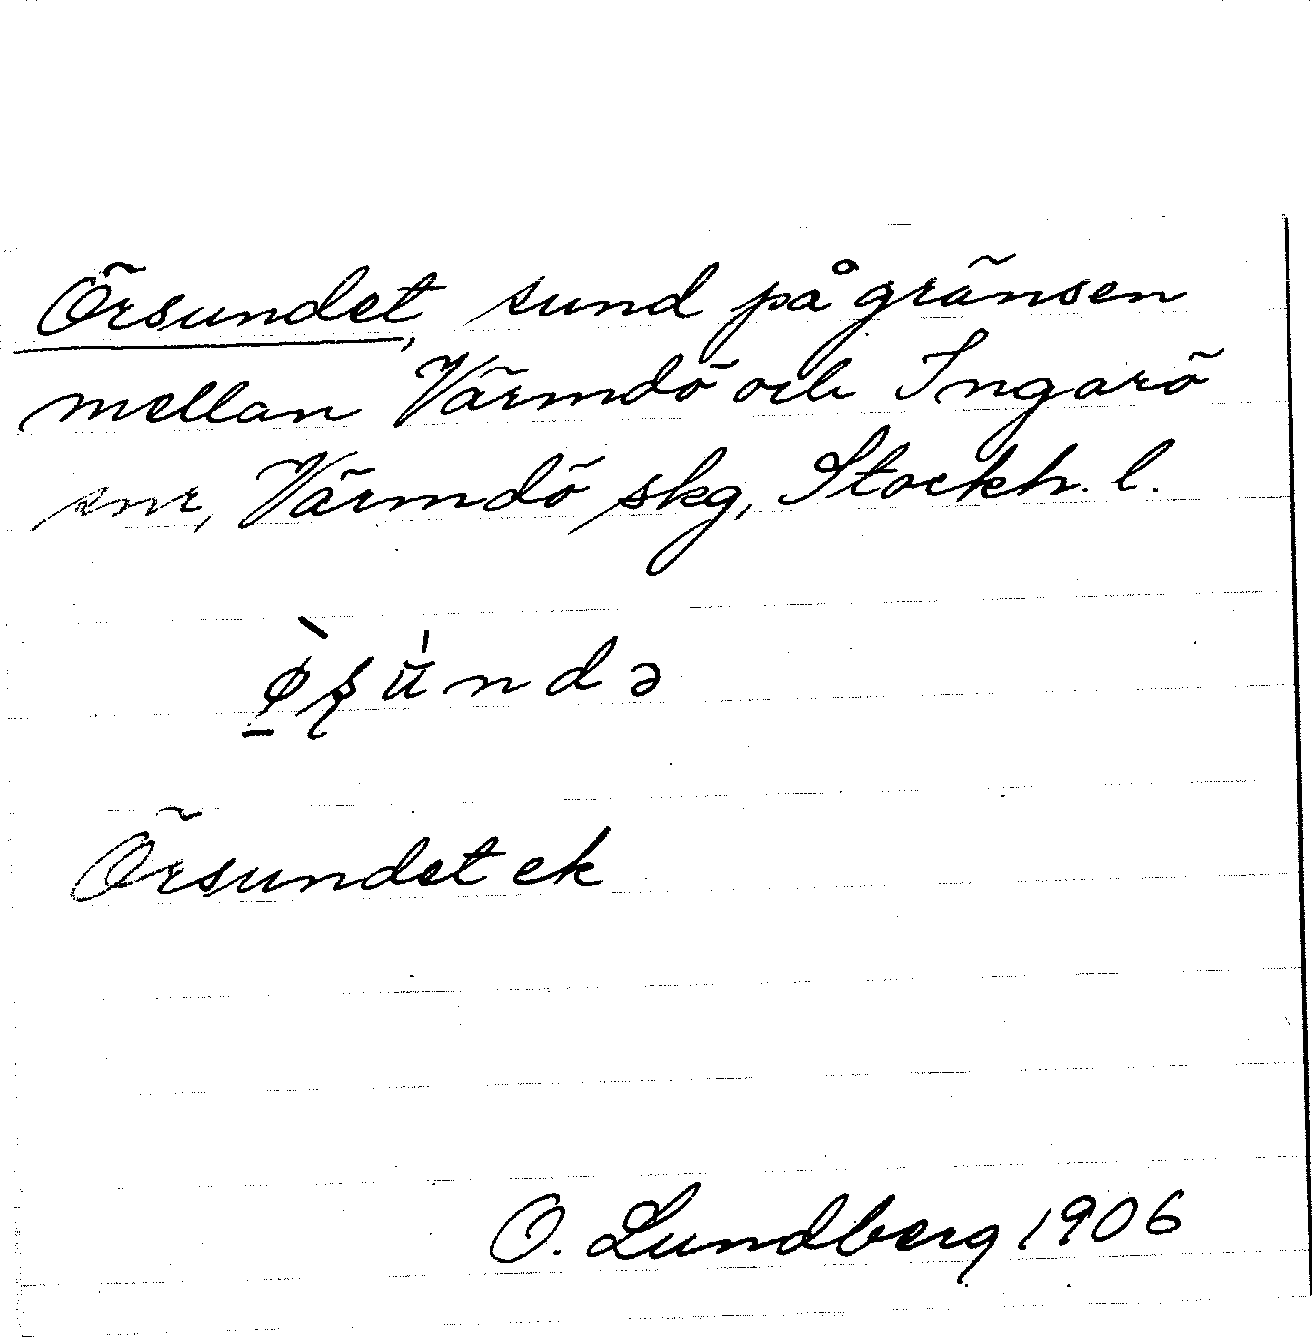 Örsundet, sund på gränsen
mellan Värmdö och Ingarö
snr, Värmdö skg, Stockh. l.
Örsundet ek
O. Lundberg 1906